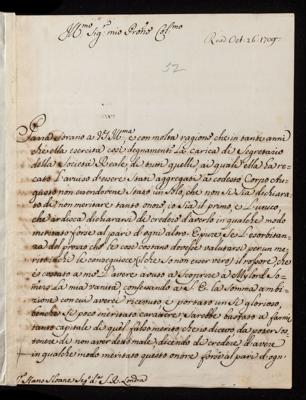 Ill.mo Sig.r mio Pron̄e Col.mo
Read Oct. 26. 1709
52
Parrà strano a VS Ill.ma, e con molta ragione, che in tanti anni
che ella esercita così degnamente la carica di Segretario
della Società Reale, di tutti quelli ai quali ella ha re-
cato l'avviso d'essere stati aggregati a codesto Corpo Au-
gusto non essendovene stato un solo, che non si sia dichiara-
to di non meritare tanto onore, io sia il primo, e l'unico,
che ardisca dichiararsi di credere d'averlo in qualche modo
meritato forse al pari di ogni altro. Eppure se l'esorbitan-
za del prezzo che le cose costano dovesse valutarsi per un me-
rito in chi le conseguisce (il che so non esser vero) il rossore, che
è costato a me l'avere avuto a scoprire a Mylord So-
mers la mia vanità, confessando a S. E. la somma ambi-
zione con cui averei ricevuto, e portato un sì glorioso
benchè sì poco meritato carattere, sarebbe bastato a farmi
tanto capitale di quel falso merito, che io dicevo da poter so-
stenere di non aver detto male, dicendo di credere d'avere
in qualche modo meritato questo onore forse al pari d'ogni
S.r Hans Sloane Seg.rio d.a S. R. Londra